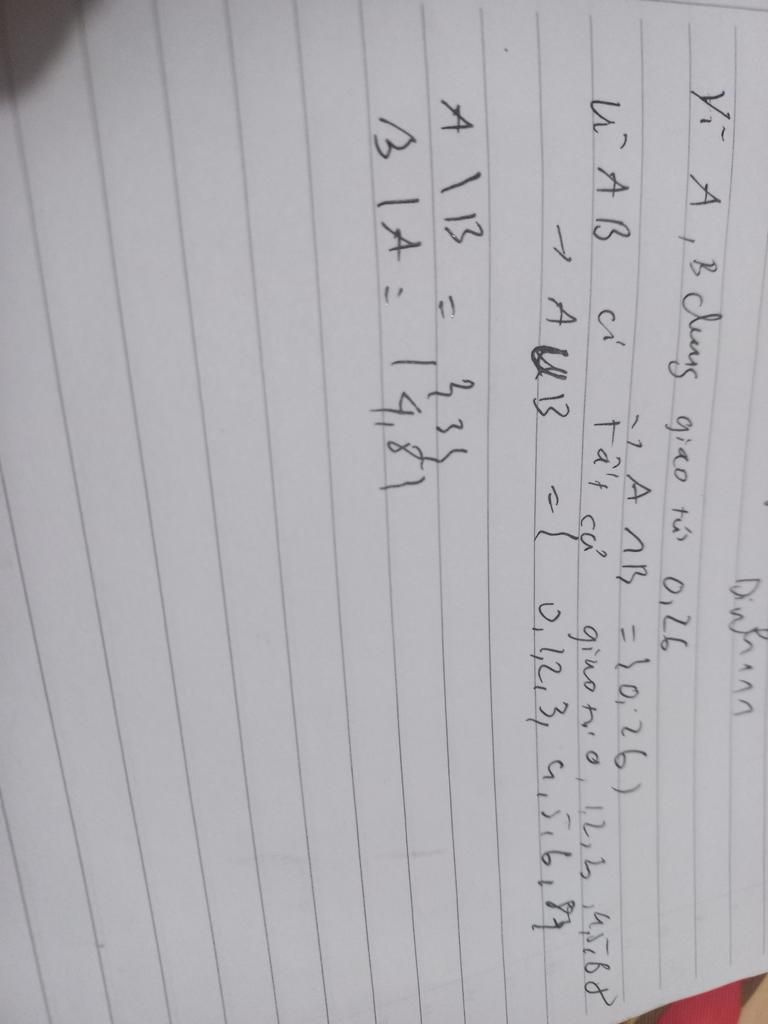 Vì A, B chung giao tử 0,26
→ A ∩ B = {0,26}
Vì A B có tất cả giao tử 0,1,2,3,4,5,6,8
→ A U B = { 0,1,2,3,4,5,6,8}
A \ B = {3}
B \ A = {4,8}